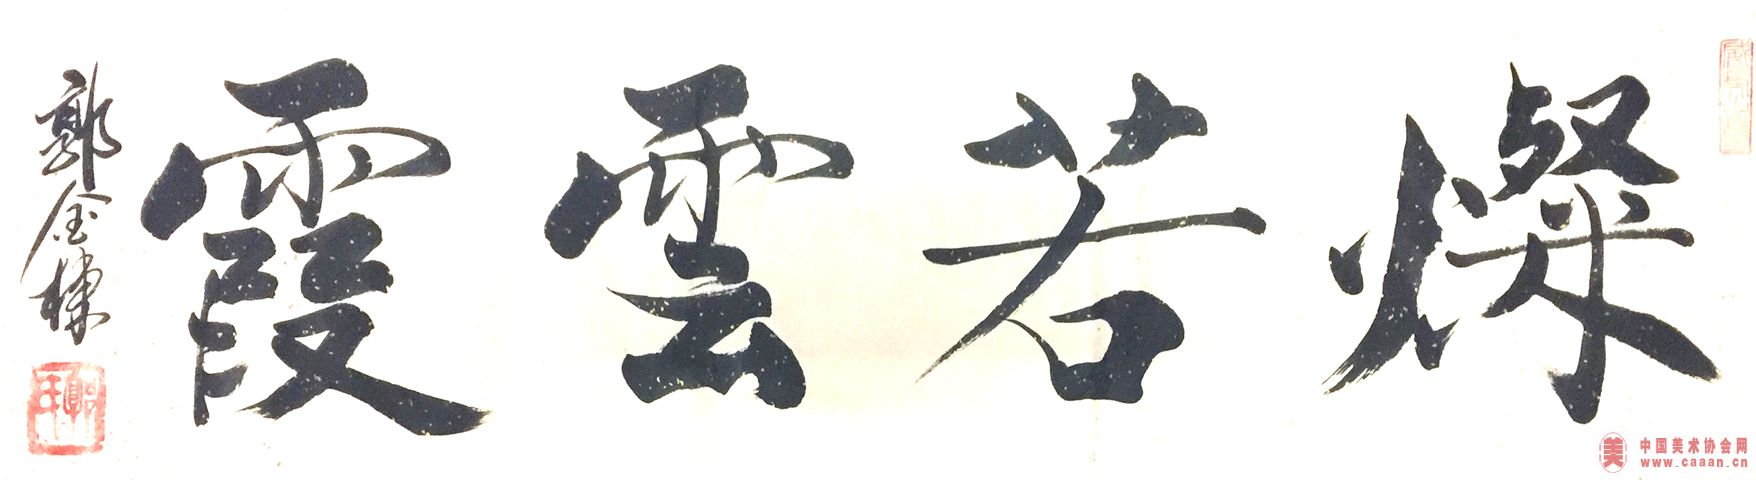 燦若雲霞
郭金棟
中国美术协会网
www.caaan.cn